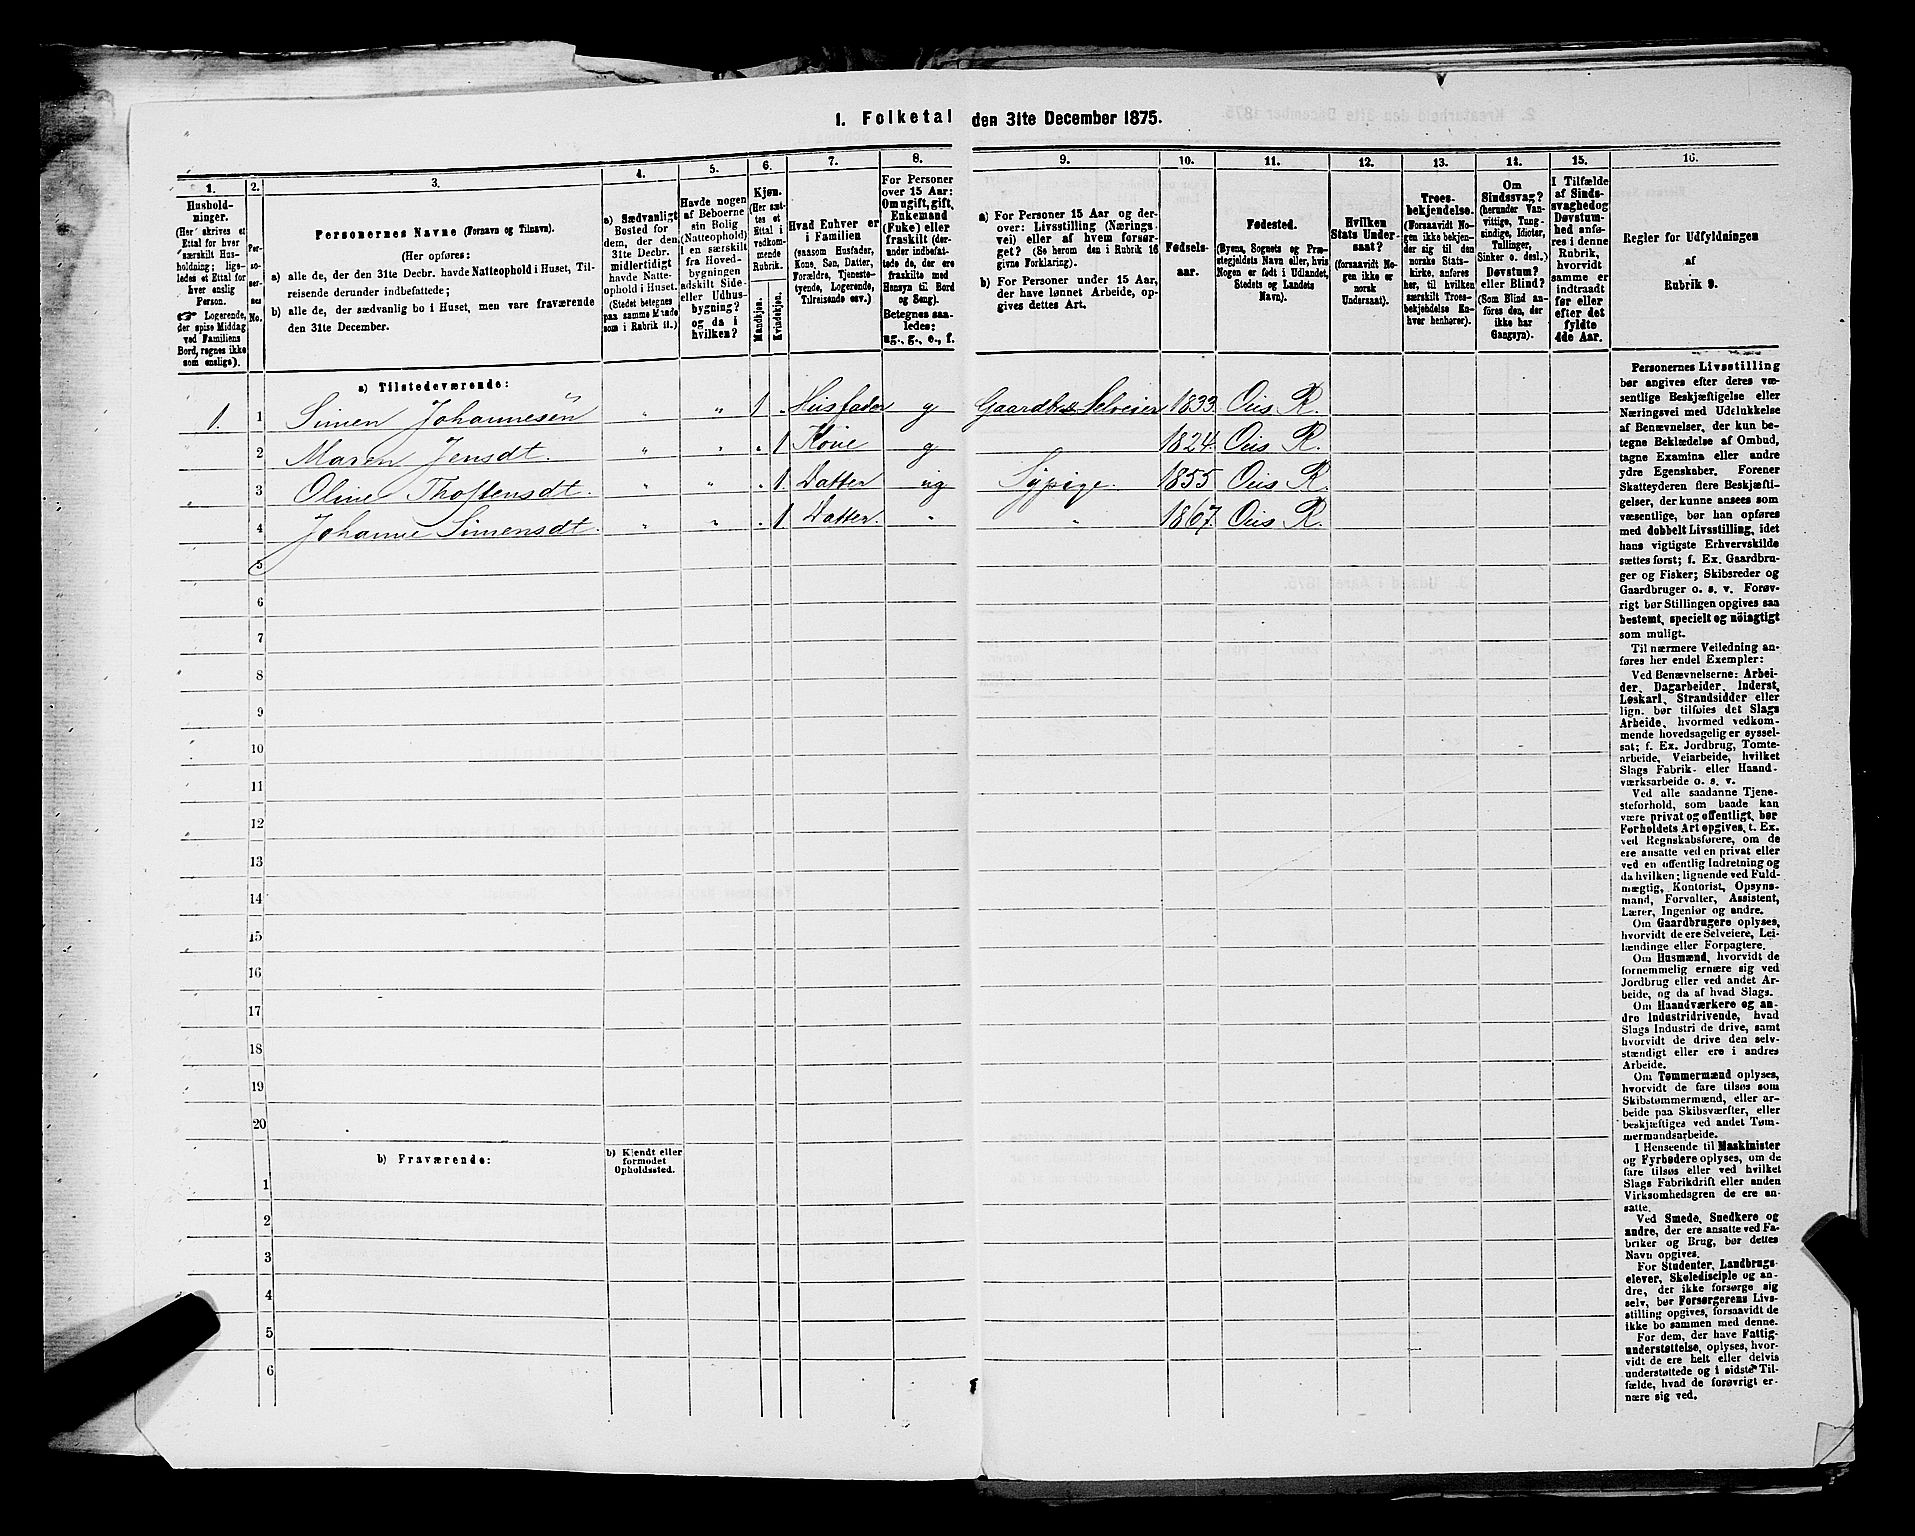 1. Folketal den 31te December 1875.
1. 2. 3. 4. 5. 6. 7. 8. 9. 10. 11. 12. 13. 14. 15. 16.
Hushold-
ninger.
(Her skrives et
Ettal for hver
særskilt Hus-
holdning; lige-
ledes et Ettal for
hver enslig
Person.
☞ Logerende,
der spise Middag
ved Familiens
Bord, regnes ikke
som enslige).
Per-
so-
ner-
nes
No.
Personernes Navne (Fornavn og Tilnavn).
(Her opføres:
a) alle de, der den 31te Decbr. havde Natteophold i Huset, Til-
reisende derunder indbefattede;
b) alle de, der sædvanlig bo i Huset, men vare fraværende
den 31te December.
a) Sædvanligt
Bosted for
dem, der den
31te Decbr.
midlertidigt
havde Natte-
ophold i Huset.
(Stedet betegnes
paa samme Maade
som i Rubrik 11.)
Havde nogen
af Beboerne
sin Bolig
(Natteophold)
i en særskilt
fra Hoved-
bygningen
adskilt Side-
eller Udhus-
bygning?
og da i
hvilken?
Kjøn.
(Her sæt-
tes et
Ettal i
vedkom-
mende
Rubrik.
Mandkjøn.
Kvindekjøn.
Hvad Enhver er
i Familien
(saasom Husfader,
Kone, Søn, Datter,
Forældre, Tjeneste-
tyende, Logerende,
Tilreisende osv.)
For Personer
over 15 Aar:
Om ugift, gift,
Enkemand
(Enke) eller
fraskilt (der-
under indbefat-
tede de, der ere
fraskilte med
Hensyn til Bord
og Seng).
Betegnes saa-
ledes:
ug., g., e., f.
a) For Personer 15 Aar og der-
over: Livsstilling (Nærings-
vei) eller af hvem forsør-
get? (Se herom den i Rubrik 16
givne Forklaring).
b) For Personer under 15 Aar,
der have lønnet Arbeide, op-
gives dettes Art.
Fødsels-
aar.
Fødested.
(Byens, Sognets og Præ-
stegjeldets Navn eller, hvis
Nogen er født i Udlandet,
Stedets og Landets
Navn).
Hvilken
Stats Under-
saat?
(forsaavidt No-
gen ikke er
norsk
Undersaat).
Troes-
bekjendelse.
(Forsaavidt No-
gen ikke bekjen-
der sig til den
norske Stats-
kirke, anføres
her, til hvilken
særskilt Troes-
bekjendelse En-
hver henhører).
Om
Sindssvag?
(herunder Van-
vittige, Tung-
sindige, Idioter,
Tullinger,
Sinker o. desl.).
Døvstum?
eller Blind?
(Som Blind an-
føres den, der
ikke har
Gangsyn).
I Tilfælde
af Sinds-
svaghed og
Døvstum-
hed anfø-
res i denne
Rubrik,
hvorvidt
samme er
indtraadt
før eller
efter det
fyldte
4de Aar.
Regler for Udfyldningen
af
Rubrik 9.
a) Tilstedeværende:
1. 1 Simen Johannesen " " 1 . Husfader g Gaardb. Selveier 1833. Ous R.
2 Maren Jensdt. " " . 1 Kone g 1824. Ous R.
3 Oline Thostensdt. " " . 1 Datter ug Sypige. 1855 Ous R.
4 Johanne Simensdt. " " . 1 Datter. " " 1867. Ous R.
5
6
7
8
9
10
11
12
13
14
15
16
17
18
19
20
b) Fraværende:
b) Kjendt eller
formodet
Opholdssted.
1
2
3
4
5
6
Personernes Livsstilling
bør angives efter deres væ-
sentlige Beskjæftigelse eller
Næringsvei med Udelukkelse
af Benævnelser, der kun be-
tegne Beklædelse af Ombud,
tagne Examina eller andre
ydre Egenskaber. Forener
Skatteyderen flere Beskjæfti-
gelser, der kunne ansees som
væsentlige, bør han opføres
med dobbelt Livsstilling, idet
hans vigtigste Erhvervskilde
sættes først; f. Ex. Gaardbru-
ger og Fisker; Skibsreder og
Gaardbruger o. s. v. Forøv-
rigt bør Stillingen opgives saa
bestemt, specielt og nöiagtigt
som muligt.
Til nærmere Veiledning an-
føres her endel Exempler:
Ved Benævnelserne: Arbei-
der, Dagarbeider, Inderst,
Løskarl, Strandsidder eller
lign. bør tilføies det Slags
Arbeide, hvormed vedkom-
mende hovedsagelig er syssel-
sat; f. Ex. Jordbrug, Tomte-
arbeide, Veiarbeide, hvilket
Slags Fabrik- eller Haand-
værksarbeide o. s. v.
Ved alle saadanne Tjene-
steforhold, som baade kan
være privat og offentligt, bør
Forholdets Art opgives, t. Ex.
ved Regnskabsførere, om de
ere ansatte ved en privat eller
ved en offentlig Indretning og
da hvilken; lignende ved Fuld-
mægtig, Kontorist, Opsyns-
mand, Forvalter, Assistent,
Lærer, Ingeniør og andre.
Om Gaardbrugere oplyses,
hvorvidt de ere Selveiere, Lei-
lændinge eller Forpagtere.
Om Husmænd, hvorvidt de
fornemmelig ernære sig ved
Jordbrug eller ved andet Ar-
beide, og da af hvad Slags.
Om Haandværkere og an-
dre Industridrivende, hvad
Slags Industri de drive, samt
hvorvidt de drive den selv-
stændigt eller ere i andres
Arbeide.
Om Tømmermænd oplyses,
hvorvidt de fare tilsøs som
Skibstømmermænd, eller ar-
beide paa Skibsværfter, eller
beskjæftiges ved andet Tøm-
mermandsarbeide.
I Henseende til Maskinister
og Fyrbødere oplyses, om de
fare tilsøs eller ved hvilket
Slags Fabrikdrift eller anden
Virksomhedsgren de ere an-
satte.
Ved Smede, Snedkere og
andre, der ere ansatte ved Fa-
briker og Brug, bør dettes
Navn opgives.
For Studenter, Landbrugs-
elever, Skoledisciple og an-
dre, der ikke forsørge sig
selv, bør Forsørgerens Livs-
stilling opgives, forsaavidt de
ikke bo sammen med denne.
For dem, der have Fattig-
understøttelse, oplyses, hvor-
vidt de ere helt eller delvis
understøttede og i sidste Til-
fælde, hvad de forøvrigt er-
nære sig ved.